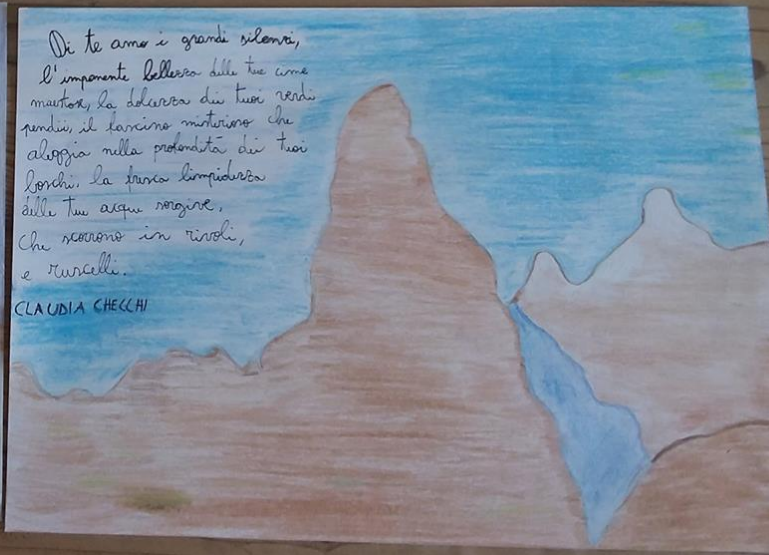 Di te amo i grandi silenzi,
l'imponente bellezza delle tue cime
maestose, la dolcezza dei tuoi verdi
pendii, il fascino misterioso che
aleggia nella profondità dei tuoi
boschi, la fresca limpidezza
delle tue acque sorgive,
che scorrono in rivoli,
e ruscelli.
CLAUDIA CHECCHI